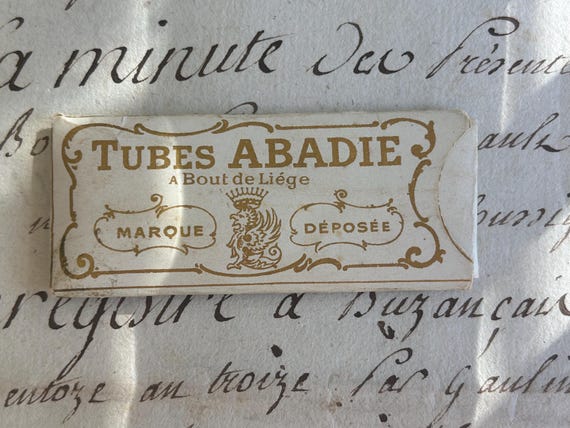 la minute des Présente
TUBES ABADIE
A Bout de Liége
MARQUE DÉPOSÉE
registre a Buzançais
quatorze au treize Par Gaulin